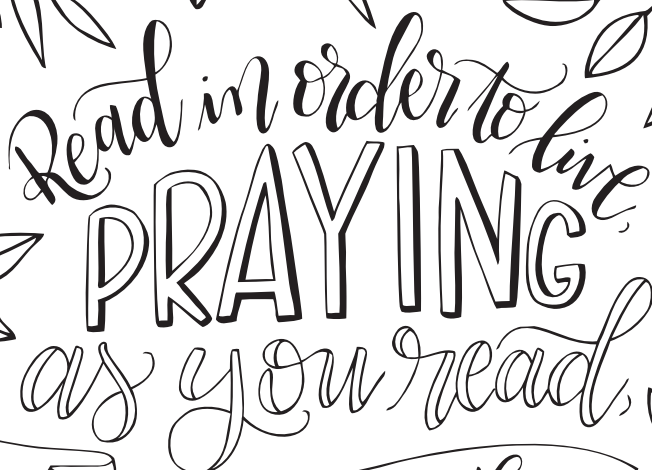 Read in order to live,
PRAYING
as you read,